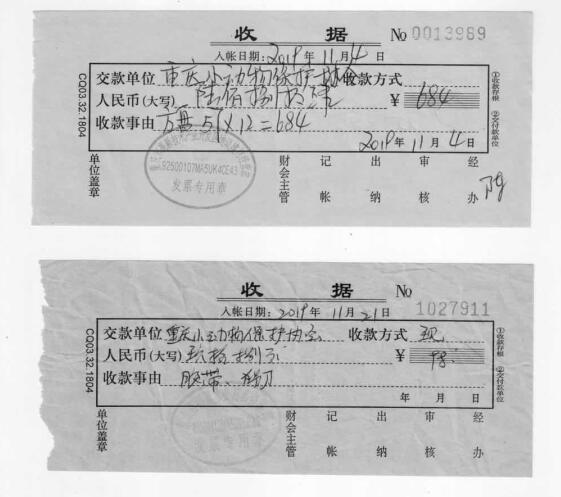 收 据 No 0013989
入帐日期：2019年 11月4日
交款单位 重庆小动物保护协会 收款方式
人民币(大写) 陆佰捌拾肆元 ￥ 684
收款事由 57×12=684
2019年 11月 4日
92500107MA5UK4CE43
发票专用章
单位盖章 财会主管 记帐 出纳 审核 经办
①收款存根 ②交付款单位
CQ03.32.1804
收 据 No 1027911
入帐日期：2019年 11月21日
交款单位 重庆小动物保护协会 收款方式 现
人民币(大写) 玖拾捌元 ￥ 98
收款事由 胶带、
年 月 日
单位盖章 财会主管 记帐 出纳 审核 经办
①收款存根 ②交付款单位
CQ03.32.1804